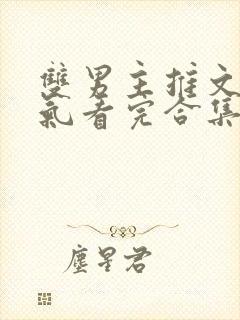 雙男主推文
氣看完合集
塵星君